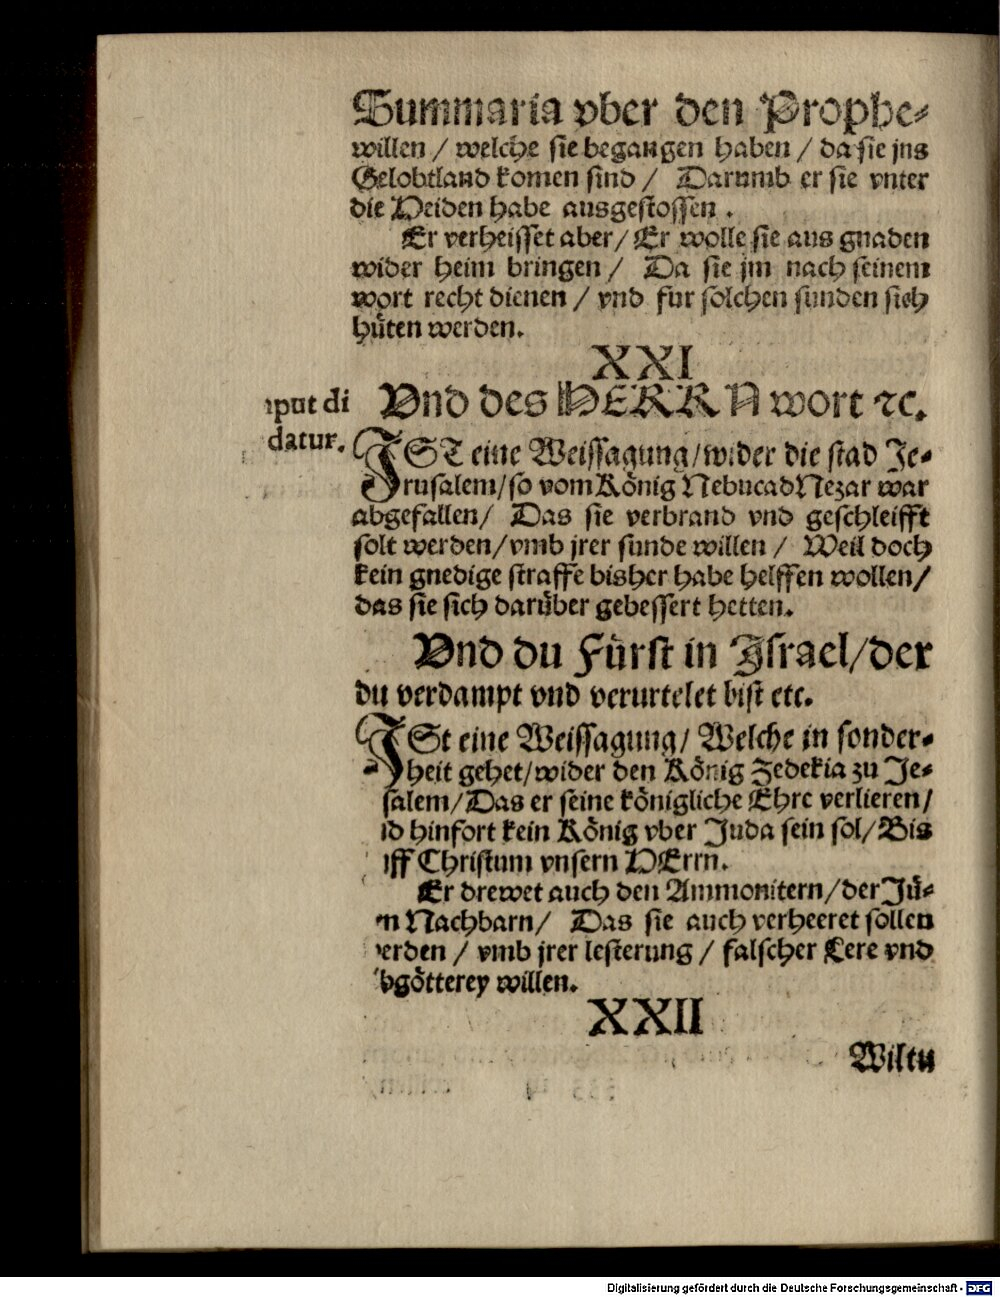 Summaria vber den Prophe⸗
willen / welche sie begangen haben / da sie jns
Gelobtland komen sind / Darumb er sie vnter
die Heiden habe ausgestossen .
Er verheisset aber / Er wolle sie aus gnaden
wider heim bringen / Da sie jm nach seinem
wort recht dienen / vnd fur solchen sunden sich
hüten werden.
XXI
Vnd des HERRN wort ꝛc.
iput di
datur.
JST eine Weissagung / wider die stad Je⸗
rusalem / so vom König NebucadNezar war
abgefallen / Das sie verbrand vnd geschleifft
solt werden / vmb jrer sunde willen / Weil doch
kein gnedige straffe bisher habe helffen wollen /
das sie sich darüber gebessert hetten.
Vnd du Fürst in Jsrael / der
du verdampt vnd verurtelet bist etc.
JSt eine Weissagung / Welche in sonder⸗
heit gehet / wider den König Zedekia zu Je⸗
salem / Das er seine königliche Ehre verlieren /
id hinfort kein König vber Juda sein sol / Bis
iff Christum vnsern HErrn.
Er drewet auch den Ammonitern / der Jü⸗
n Nachbarn / Das sie auch verheeret sollen
erden / vmb jrer lesterung / falscher Lere vnd
bgötterey willen.
XXII
Wiltu
Digitalisierung gefördert durch die Deutsche Forschungsgemeinschaft - DFG